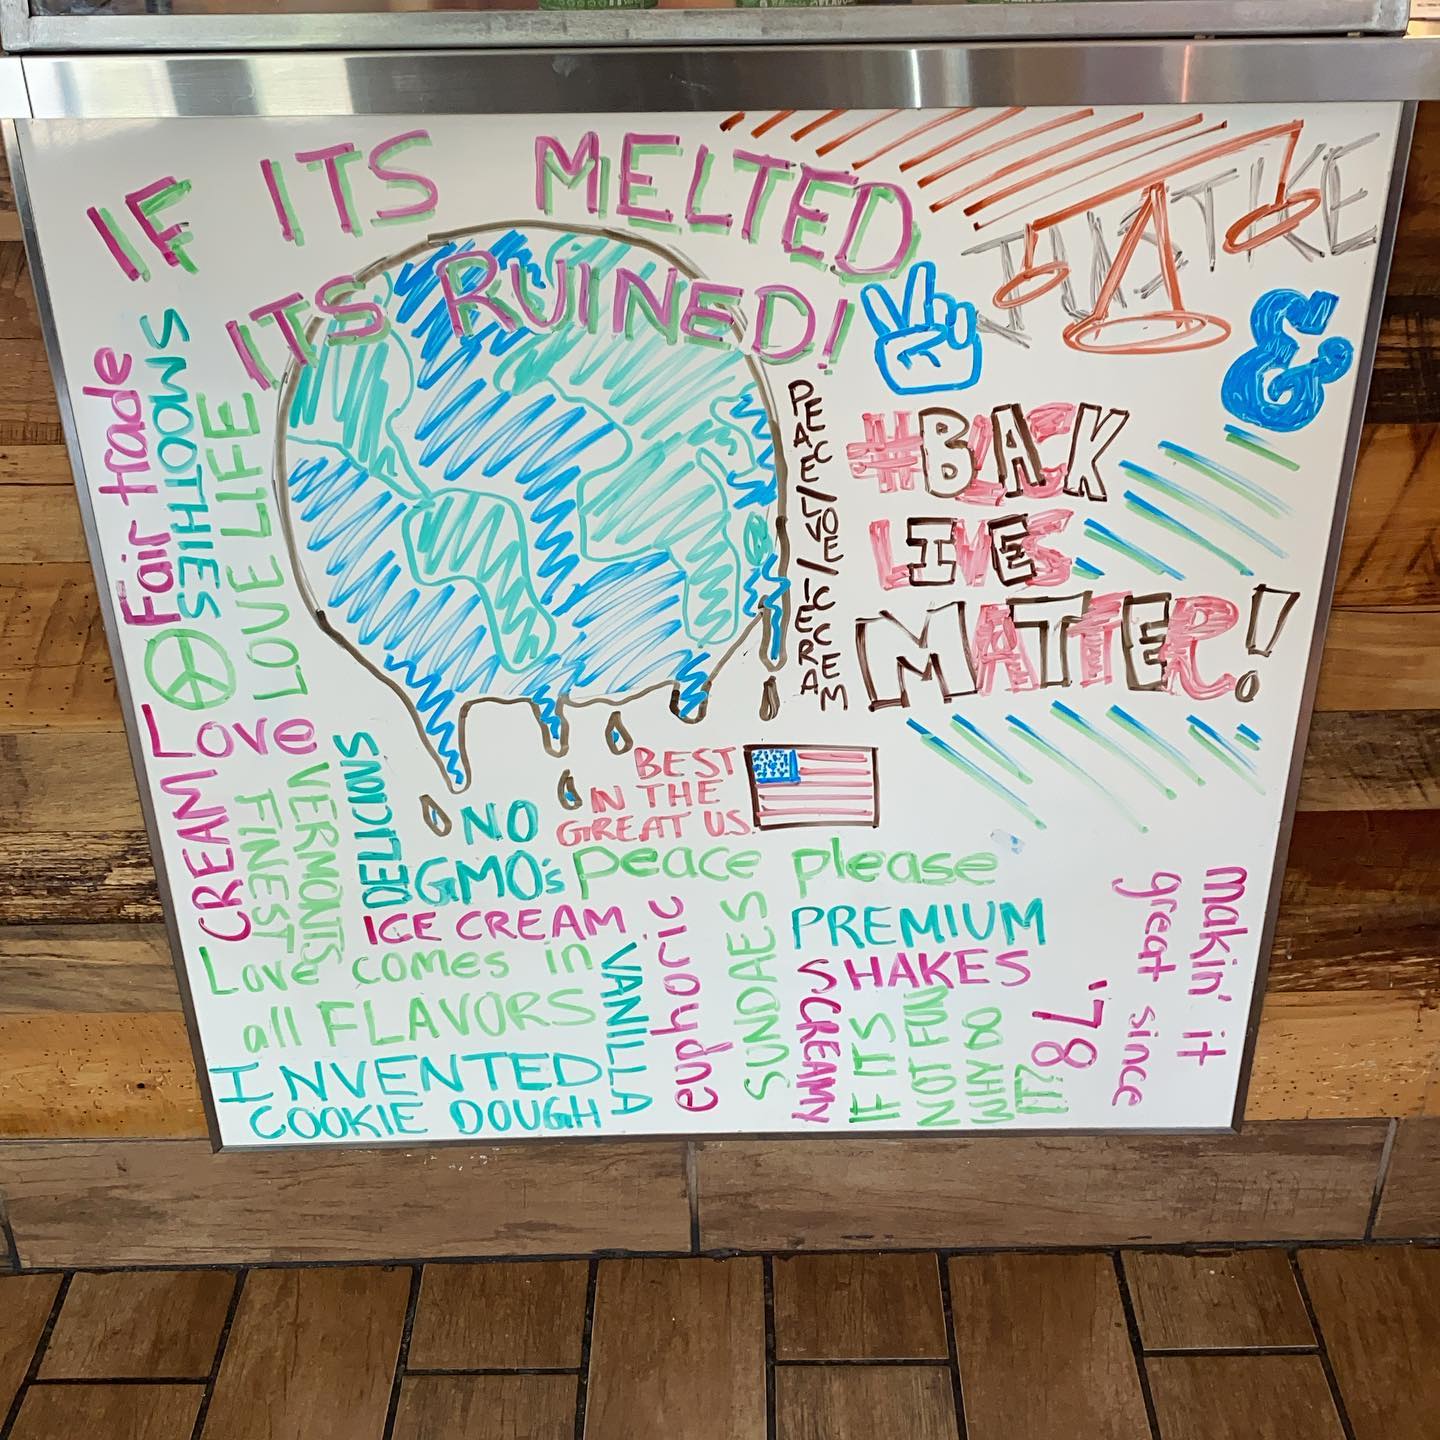 IF ITS MELTED
ITS RUINED!
JUSTICE
&
#BLACK
LIVES
MATTER!
PEACE/LOVE/ICECREAM
Fair trade
SMOOTHIES
LOVE LIFE
Love
CREAM
VERMONT'S
FINEST
DELICIOUS
NO
GMO's
BEST
IN THE
GREAT U.S.
peace please
ICE CREAM
Love comes in
all FLAVORS
INVENTED
COOKIE DOUGH
VANILLA
euphoric
SUNDAES
PREMIUM
SHAKES
CREAMY
IF ITS
NOT FUN
WHY DO
IT?!
makin' it
great since
'78